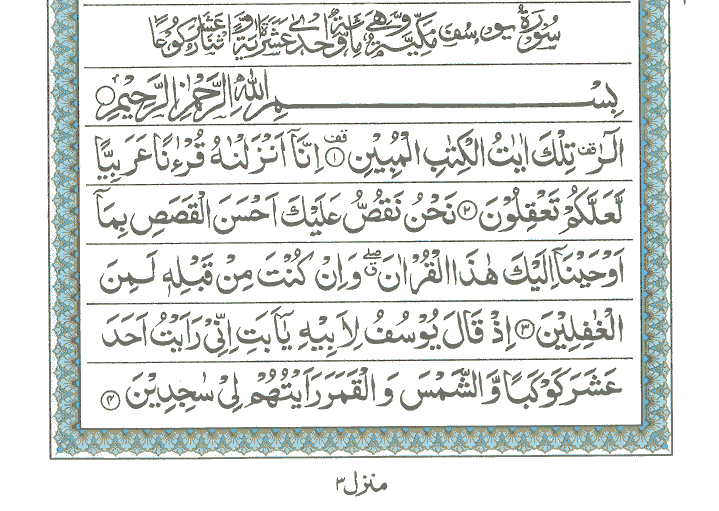 سُوْرَةُ يُوْسُفَ مَكِّيَّةٌ وَّهِيَ مِائَةٌ وَّاِحْدٰى عَشْرَةَ اٰيَةً وَّاثْنَا عَشَرَ رُكُوْعًا
بِسْمِ اللّٰهِ الرَّحْمٰنِ الرَّحِيْمِ
الٓرٰ قف تِلْكَ اٰيٰتُ الْكِتٰبِ الْمُبِيْنِ ۝۱ قف اِنَّاۤ اَنْزَلْنٰهُ قُرْءٰنًا عَرَبِيًّا
لَّعَلَّكُمْ تَعْقِلُوْنَ ۝۲ نَحْنُ نَقُصُّ عَلَيْكَ اَحْسَنَ الْقَصَصِ بِمَاۤ
اَوْحَيْنَاۤ اِلَيْكَ هٰذَا الْقُرْاٰنَ ۖق وَاِنْ كُنْتَ مِنْ قَبْلِهٖ لَمِنَ
الْغٰفِلِيْنَ ۝۳ اِذْ قَالَ يُوْسُفُ لِاَبِيْهِ يٰۤاَبَتِ اِنِّيْ رَاَيْتُ اَحَدَ
عَشَرَ كَوْكَبًا وَّالشَّمْسَ وَالْقَمَرَ رَاَيْتُهُمْ لِيْ سٰجِدِيْنَ ۝۴
منزل ۳